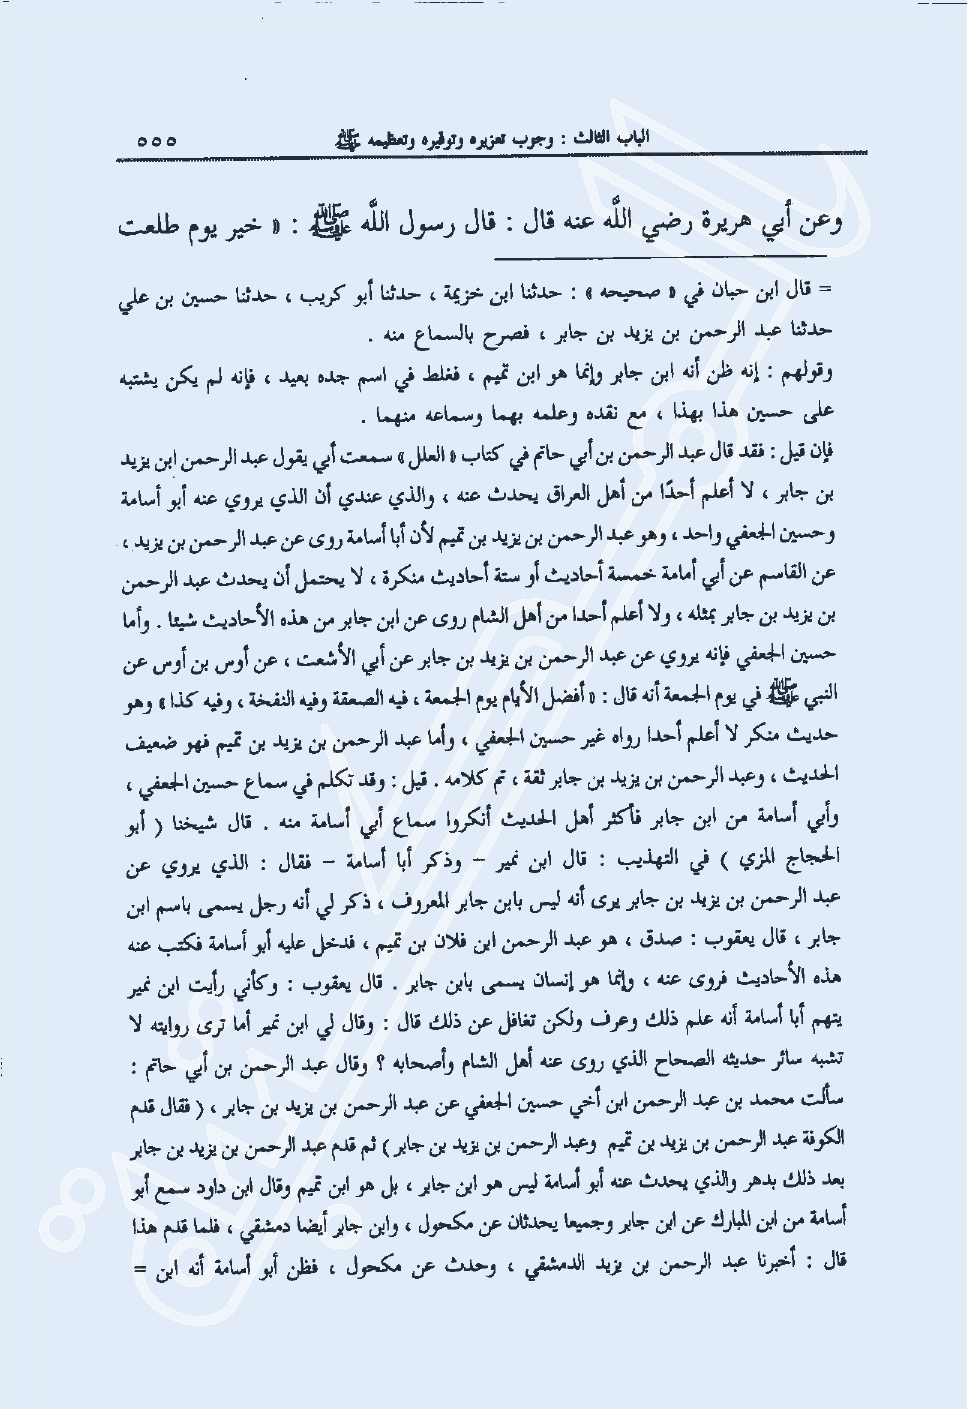 الباب الثالث : وجوب تعزيره وتوقيره وتعظيمه ﷺ ٥٥٥
وعن أبي هريرة رضي اللَّه عنه قال : قال رسول اللَّه ﷺ : « خير يوم طلعت
= قال ابن حبان في « صحيحه » : حدثنا ابن خزيمة ، حدثنا أبو كريب ، حدثنا حسين بن علي
حدثنا عبد الرحمن بن يزيد بن جابر ، فصرح بالسماع منه .
وقولهم : إنه ظن أنه ابن جابر وإنما هو ابن تميم ، فغلط في اسم جده بعيد ، فإنه لم يكن يشتبه
على حسين هذا بهذا ، مع نقده وعلمه بهما وسماعه منهما .
فإن قيل : فقد قال عبد الرحمن بن أبي حاتم في كتاب « العلل » سمعت أبي يقول عبد الرحمن ابن يزيد
بن جابر ، لا أعلم أحدًا من أهل العراق يحدث عنه ، والذي عندي أن الذي يروي عنه أبو أسامة
وحسين الجعفي واحد ، وهو عبد الرحمن بن يزيد بن تميم لأن أبا أسامة روى عن عبد الرحمن بن يزيد ،
عن القاسم عن أبي أمامة خمسة أحاديث أو ستة أحاديث منكرة ، لا يحتمل أن يحدث عبد الرحمن
بن يزيد بن جابر بمثله ، ولا أعلم أحدا من أهل الشام روى عن ابن جابر من هذه الأحاديث شيئا . وأما
حسين الجعفي فإنه يروي عن عبد الرحمن بن يزيد بن جابر عن أبي الأشعت ، عن أوس بن أوس عن
النبي ﷺ في يوم الجمعة أنه قال : « أفضل الأيام يوم الجمعة ، فيه الصعقة وفيه النفخة ، وفيه كذا » وهو
حديث منكر لا أعلم أحدا رواه غير حسين الجعفي ، وأما عبد الرحمن بن يزيد بن تميم فهو ضعيف
الحديث ، وعبد الرحمن بن يزيد بن جابر ثقة ، تم كلامه . قيل : وقد تكلم في سماع حسين الجعفي ،
وأبي أسامة من ابن جابر فأكثر أهل الحديث أنكروا سماع أبي أسامة منه . قال شيخنا ( أبو
الحجاج المزي ) في التهذيب : قال ابن نمير – وذكر أبا أسامة – فقال : الذي يروي عن
عبد الرحمن بن يزيد بن جابر يرى أنه ليس بابن جابر المعروف ، ذكر لي أنه رجل يسمى باسم ابن
جابر ، قال يعقوب : صدق ، هو عبد الرحمن ابن فلان بن تميم ، فدخل عليه أبو أسامة فكتب عنه
هذه الأحاديث فروى عنه ، وإنما هو إنسان يسمى بابن جابر . قال يعقوب : وكأني رأيت ابن نمير
يتهم أبا أسامة أنه علم ذلك وعرف ولكن تغافل عن ذلك قال : وقال لي ابن نمير أما ترى روايته لا
تشبه سائر حديثه الصحاح الذي روى عنه أهل الشام وأصحابه ؟ وقال عبد الرحمن بن أبي حاتم :
سألت محمد بن عبد الرحمن ابن أخي حسين الجعفي عن عبد الرحمن بن يزيد بن جابر ، ( فقال قدم
الكوفة عبد الرحمن بن يزيد بن تميم وعبد الرحمن بن يزيد بن جابر ) ثم قدم عبد الرحمن بن يزيد بن جابر
بعد ذلك بدهر والذي يحدث عنه أبو أسامة ليس هو ابن جابر ، بل هو ابن تميم وقال ابن داود سمع أبو
أسامة من ابن المبارك عن ابن جابر وجميعا يحدثان عن مكحول ، وابن جابر أيضا دمشقي ، فلما قدم هذا
قال : أخبرنا عبد الرحمن بن يزيد الدمشقي ، وحدث عن مكحول ، فظن أبو أسامة أنه ابن =